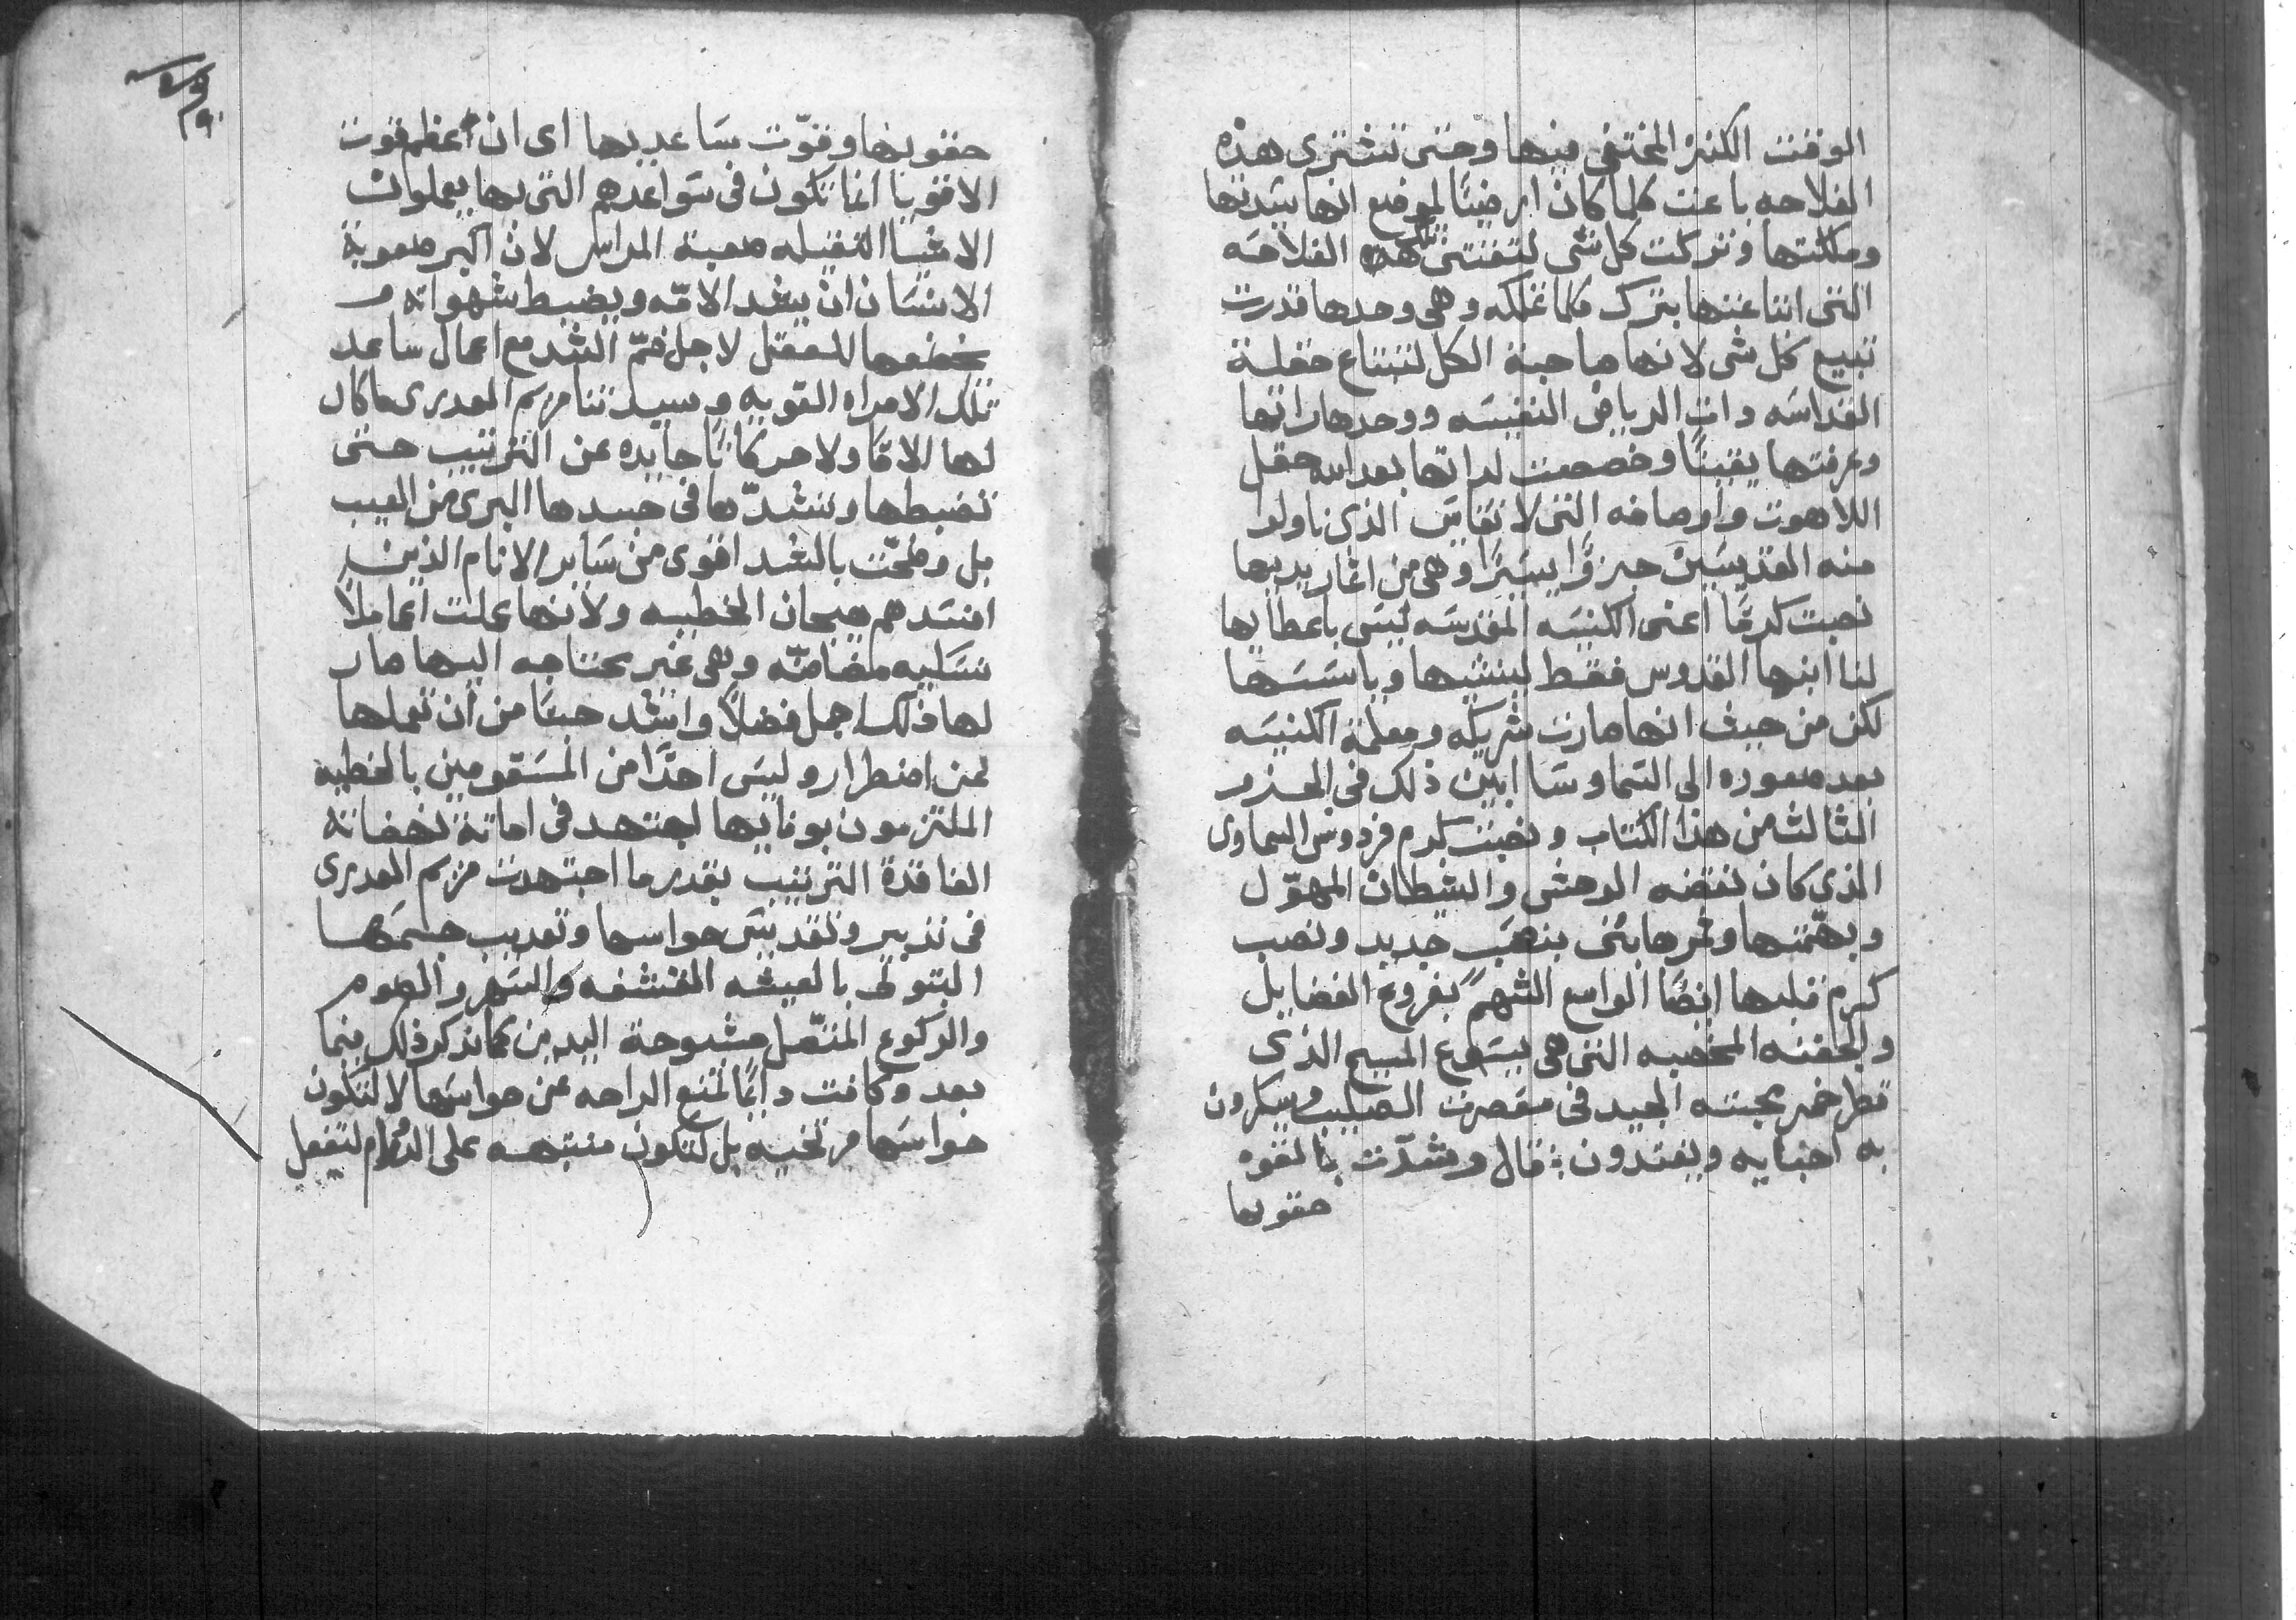 الوقت الكنز المختفى فيها وحتى تشترى هذه
الفلاحه باعت كلما كان ارضيًا لموضع انها سيدتها
وملكتها وتركت كل شى لتقتنى تلك الفلاحه
التى ابتاعتها بترك كلما تملكه وهى وحدها قدرت
تبيع كل شى لانها صاحبة الكل لتبتاع حقلة
القداسه دات الرياض النفيسه ووحدها راتها
وعرفتها يقينًا وخصصت لداتها بعد الله حقل
اللاهوت واوصافه التى لا تقاس الذى ناولوا
منه القديسين جزوًا يسيرًا وهى من اثمار يديها
نصبت كرمًا اعنى الكنيسه المقدسه ليس باعطايها
لنا ابنها القدوس فقط لينشيها وياسسها
لكن من حيث انها صارت شريكه ومعلمة الكنيسه
بعد صعوده الى السما وسا ابين ذلك فى الجزو
الثالث من هذا الكتاب ونصبت كرم فردوس السماوى
الذى كان نقضه الوحش والشطان المهوّل
وبهمّتها وثمرها بنى بنصب جديد ونصب
كرم قلبها ايضًا الواسع الشهم بفروع الفضايل
والجفنه المخصبه التى هى يسوع المسيح الذى
قطر خمر محبته المجيد فى معصرت الصليب ويسكرون
به احبايه ويغتدون : قال وشدّت بالقوه
حقويها
حقويها وقوّت ساعديها اى ان اعظم قوت
الاقويا انما تكون فى سواعدهم التى بها يعملون
الاشيا الثقيله صعبة المراس لان اكبر صعوبة
الانسان ان يشد الامّه ويضبط شهواته و
يخضعها للعقل لاجل ضمّ الشد مع اعمال ساعد
تلك الامراه القويه وسيدتنا مريم العدرى ما كان
لها الامًا ولا حركاتًا حايده عن الترتيب حتى
تضبطها وتشدّها فى جسدها البرى من العيب
بل وضحّت بالشد اقوى من ساير الانام الذين
افسدهم هيجان الخطيه ولانها عملت اعمالًا
نسليه مضامنّه وهى غير محتاجه اليها صار
لها ذلك اجمل فضلًا واشد حبًا من ان تعملها
لمن اضطرار وليس احدًا من المسقومين بالخطيه
الملتزمون بوفايها اجتهد فى اماتة نهضاته
الفاقدة الترتيب بقدر ما اجتهدت مريم العدرى
فى تدبير وتقديس حواسها وتعديب جسمها
البتولى بالعيشه القشفه والسهر والصوم
والركوع المتصل مشبوحة اليدين كما نذكر ذلك فيما
بعد وكانت دايمًا تمنع الراحه عن حواسها لا لتكون
حواسها مرتخيه بل لتكون منتبهه على الدوام لتفعل